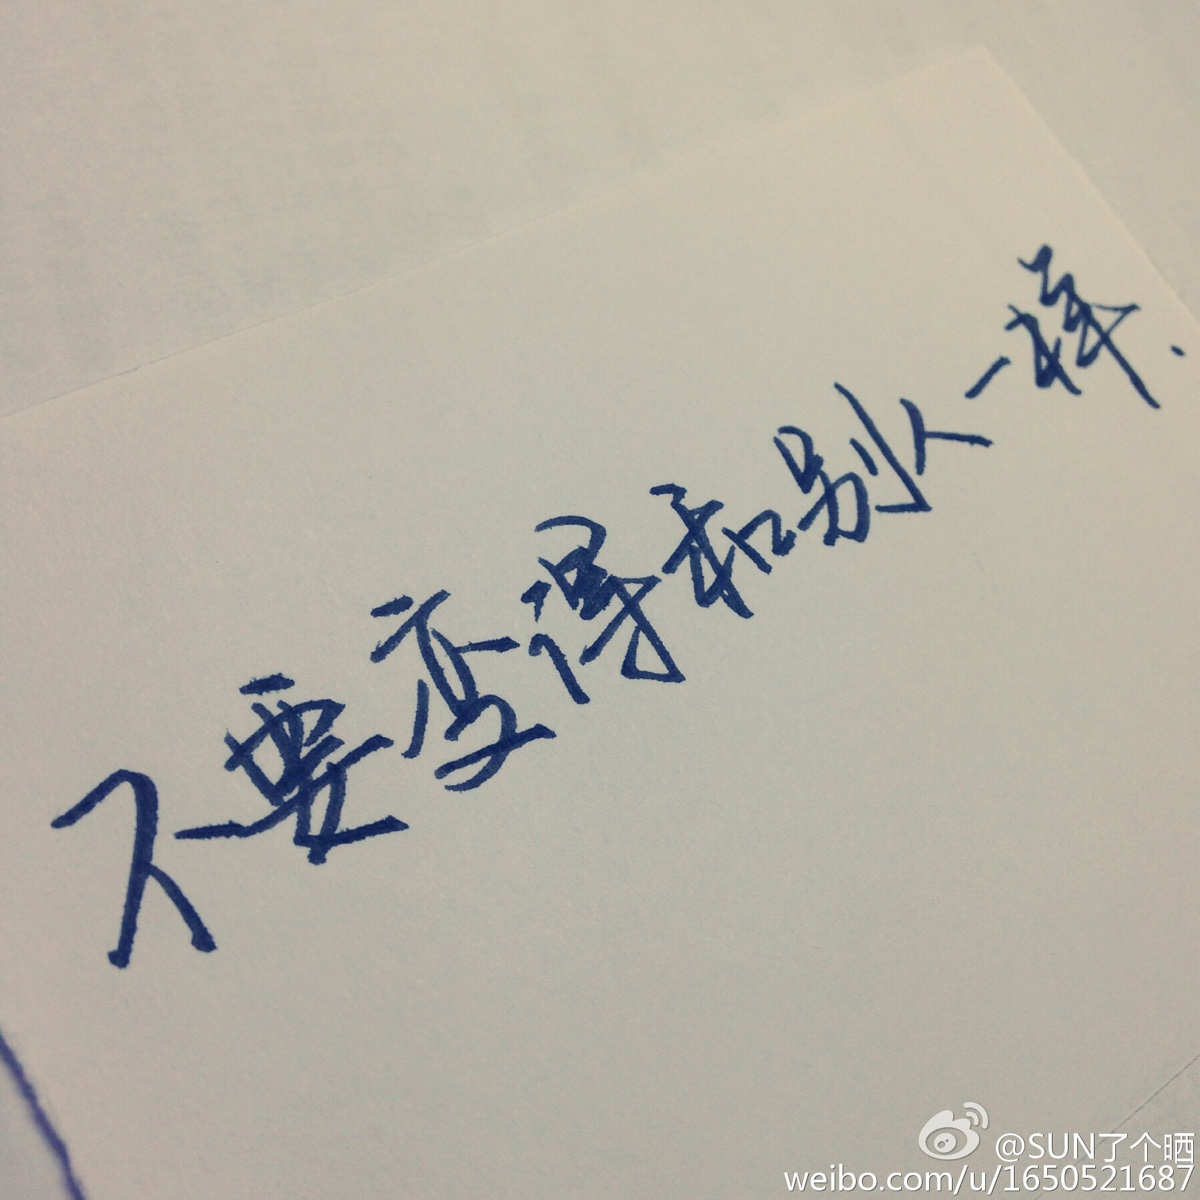 不要变得和别人一样.
@SUN了个晒
weibo.com/u/1650521687